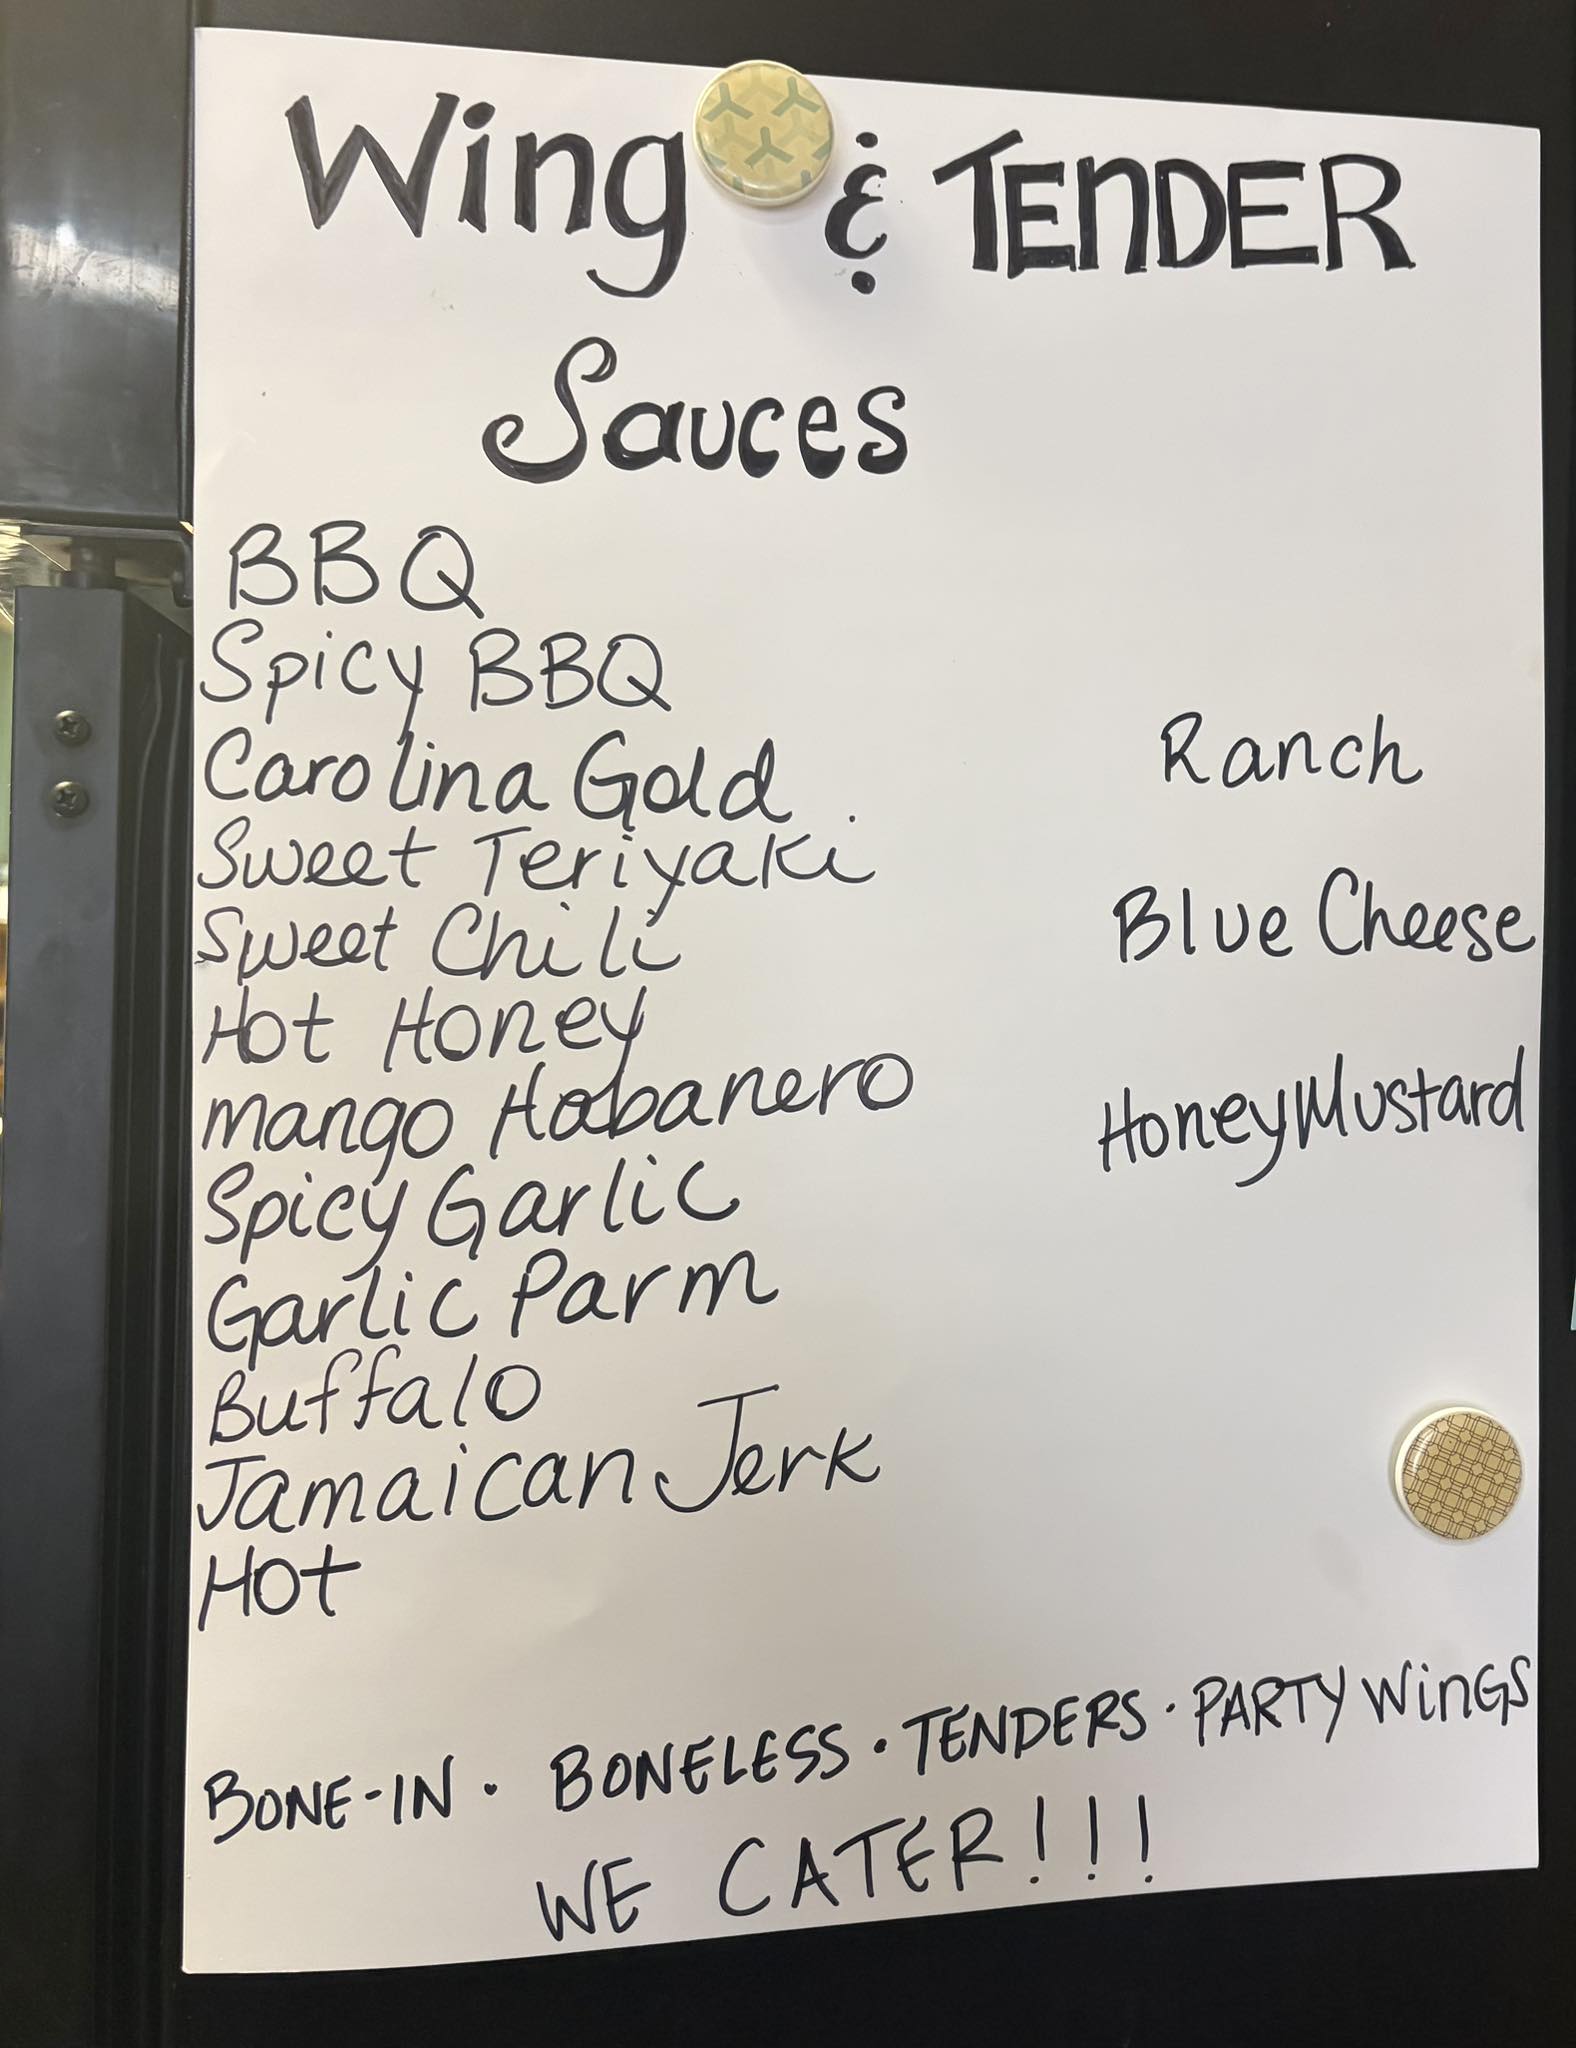 Wing & TENDER
Sauces
BBQ
Spicy BBQ
Carolina Gold
Sweet Teriyaki
Sweet Chili
Hot Honey
Mango Habanero
Spicy Garlic
Garlic Parm
Buffalo
Jamaican Jerk
Hot
Ranch
Blue Cheese
Honey Mustard
BONE-IN · BONELESS · TENDERS · PARTY WiNGS
WE CATER!!!